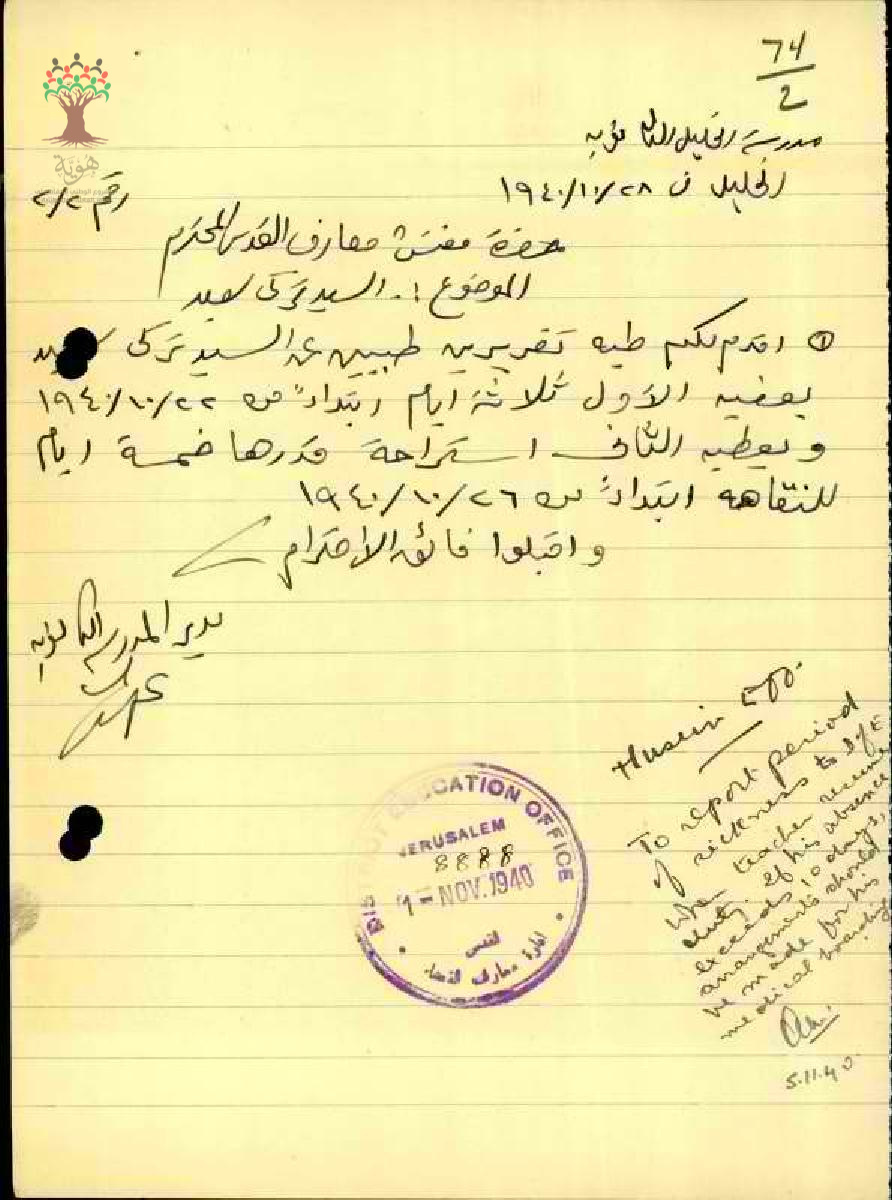 74
2
مدرسة الخليل الثانوية
الخليل في ١٩٤٠/١٠/٢٨
رقم ٢/٢
حضرة مفتش معارف القدس المحترم
الموضوع :. السيد تركي سعيد
① اقدم لكم طيه تقريرين طبيين عن السيد تركي سعيد
يعفيه الاول ثلاثة ايام ابتداءً من ١٩٤٠/١٠/٢٢
ويعطيه الثاني استراحة قدرها خمسة ايام
للنقاهة ابتداءً من ١٩٤٠/١٠/٢٦
واقبلوا فائق الاحترام
مدير المدرسة الثانوية
Husein Eff.
To report period
of sickness to
when teacher resumes
duty. If his absence
exceeds 10 days,
arrangements should
be made for his
medical boarding
5.11.40
DISTRICT EDUCATION OFFICE
JERUSALEM
8888
1 - NOV. 1940
القدس
ادارة معارف لواء
هوية